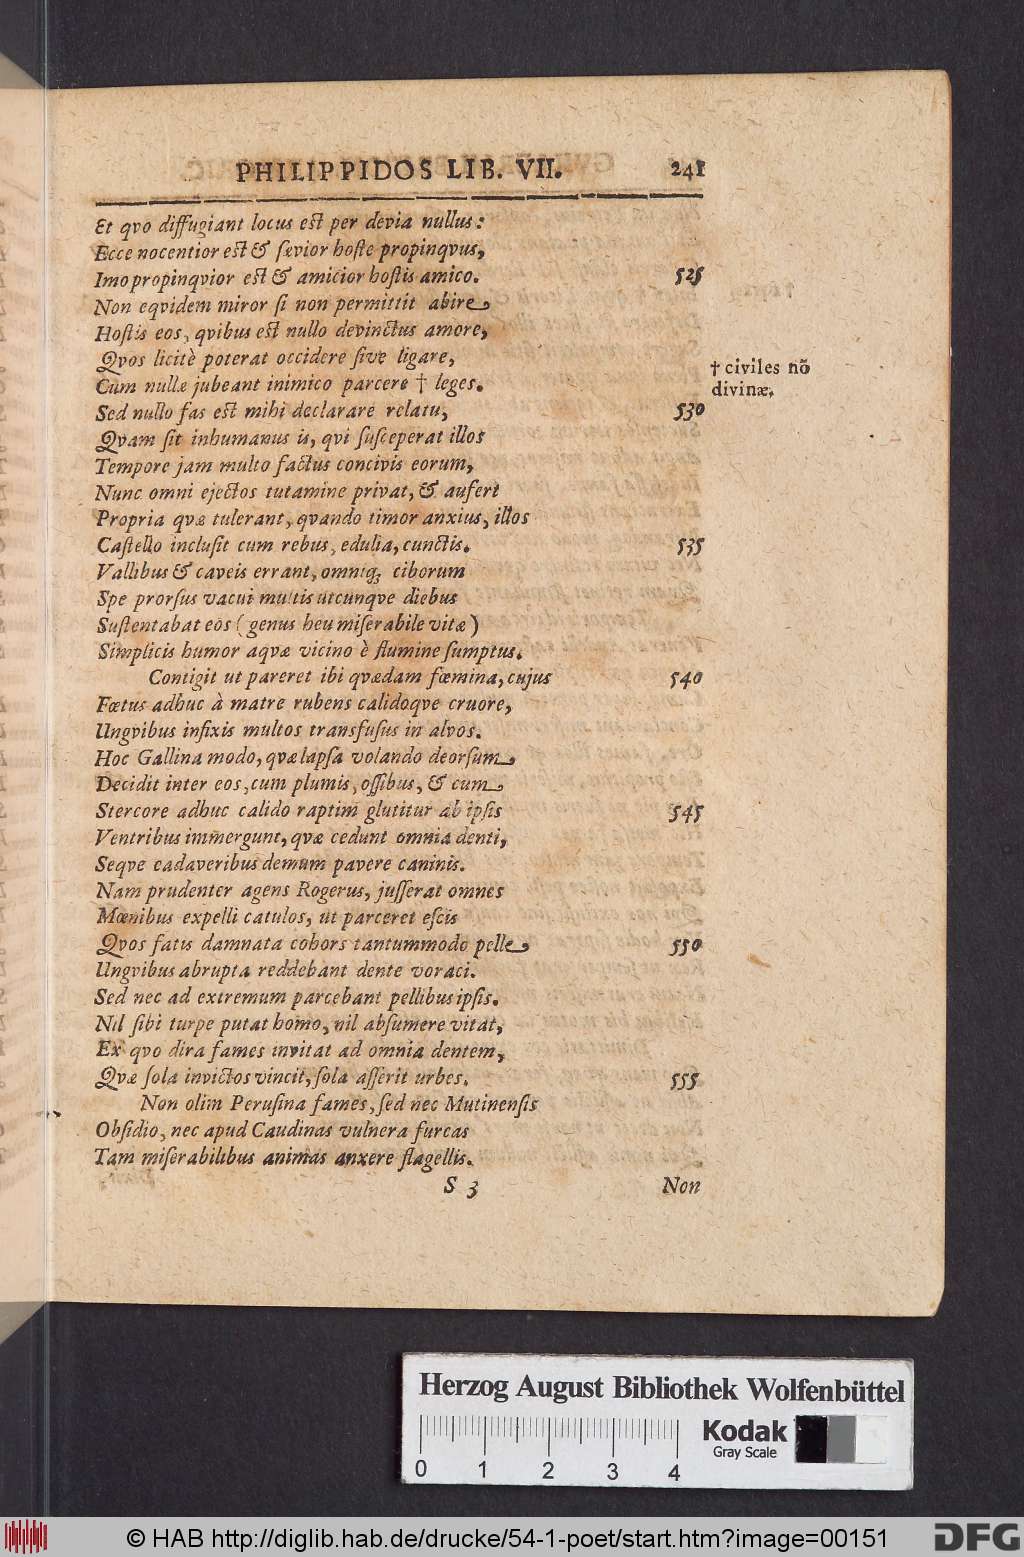 PHILIPPIDOS LIB. VII. 241
Et qvo diffugiant locus est per devia nullus:
Ecce nocentior est & sævior hoste propinqvus,
Imo propinqvior est & amicior hostis amico. 525
Non eqvidem miror si non permittit abire
Hostis eos, qvibus est nullo devinctus amore,
Qvos licitè poterat occidere sive ligare,
Cum nullæ jubeant inimico parcere † leges.
† civiles nõ
divinæ.
Sed nullo fas est mihi declarare relatu, 530
Qvam sit inhumanus is, qvi susceperat illos
Tempore jam multo factus concivis eorum,
Nunc omni ejectos tutamine privat, & aufert
Propria qvæ tulerant, qvando timor anxius, illos
Castello inclusit cum rebus, edulia, cunctis. 535
Vallibus & caveis errant, omniq; ciborum
Spe prorsus vacui multis utcunqve diebus
Sustentabat eos (genus heu miserabile vitæ)
Simplicis humor aqvæ vicino è flumine sumptus.
Contigit ut pareret ibi qvædam fœmina, cujus 540
Fœtus adhuc à matre rubens calidoqve cruore,
Ungvibus infixis multos transfusus in alvos.
Hoc Gallina modo, qvæ lapsa volando deorsum
Decidit inter eos, cum plumis, ossibus, & cum
Stercore adhuc calido raptim glutitur ab ipsis 545
Ventribus immergunt, qvæ cedunt omnia denti,
Seqve cadaveribus demum pavere caninis.
Nam prudenter agens Rogerus, jusserat omnes
Mœnibus expelli catulos, ut parceret escis
Qvos fatis damnata cohors tantummodo pelle 550
Ungvibus abrupta reddebant dente voraci.
Sed nec ad extremum parcebant pellibus ipsis.
Nil sibi turpe putat homo, nil absumere vitat,
Ex qvo dira fames invitat ad omnia dentem,
Qvæ sola invictos vincit, sola asserit urbes. 555
Non olim Perusina fames, sed nec Mutinensis
Obsidio, nec apud Caudinas vulnera furcas
Tam miserabilibus animas anxere flagellis.
S 3 Non
Herzog August Bibliothek Wolfenbüttel
Kodak
Gray Scale
0 1 2 3 4
© HAB http://diglib.hab.de/drucke/54-1-poet/start.htm?image=00151
DFG